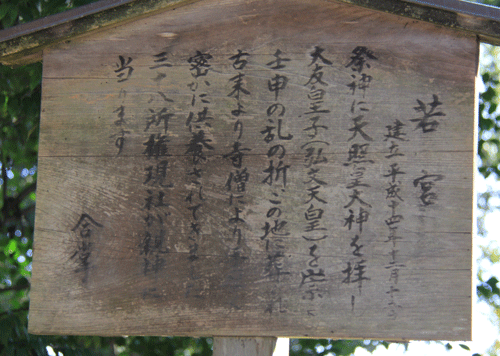 若宮
建立平成十四年十一月
祭神に天照皇大神を拝し
大友皇子(弘文天皇)を
壬申の乱の折この地に葬
古来より寺僧により
密かに供養されてき
三十八所権現社が親神
当ります
合掌